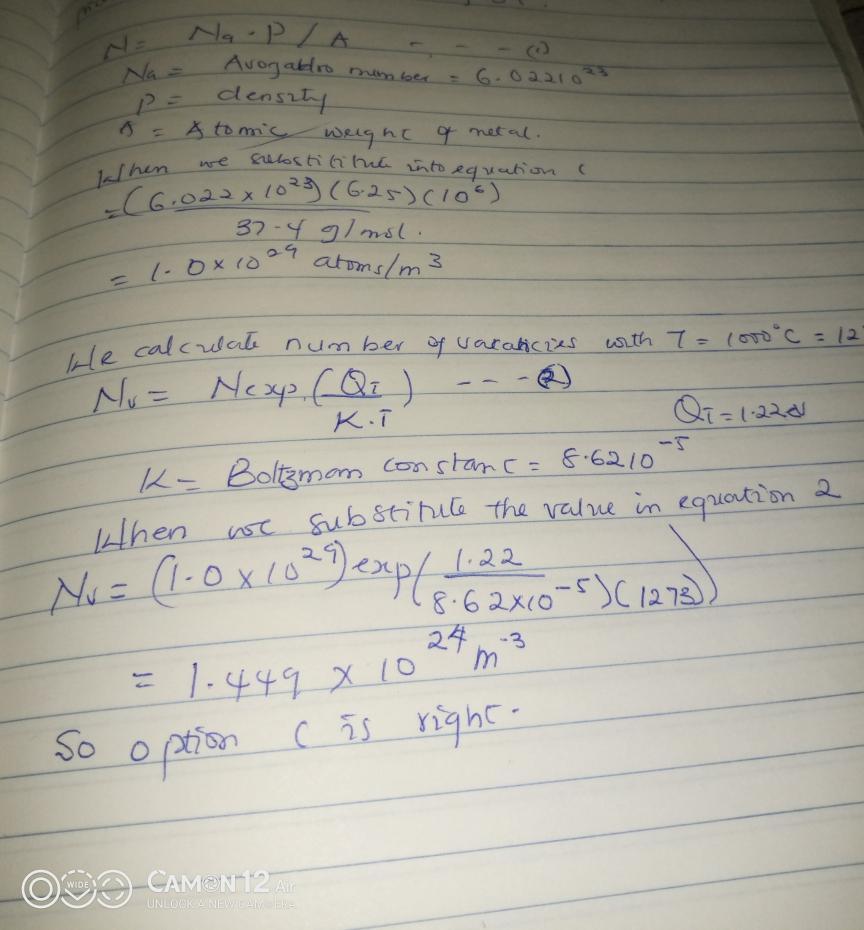 N = Na . P / A - - - (1)
Na = Avogabdro number = 6.02210²³
P = density
A = Atomic weight of metal.
When we substititute into equation (
= (6.022 x 10²³) (6.25) (10⁶)
37.4 g/mol.
= 1.0 x 10²⁹ atoms/m³
We calculate number of vacancies with T = 1000°C = 12
Nv = N exp. (Qi) - - - (2)
K.T
Qi = 1.22
K = Boltzmann constant = 8.6210⁻⁵
When we substitute the value in equation 2
Nv = (1.0 x 10²⁹) exp ( 1.22
(8.62x10⁻⁵)(1273))
= 1.449 x 10²⁴ m⁻³
So option C is right.
WIDE CAMON 12 Air
UNLOCK A NEW CAMERA